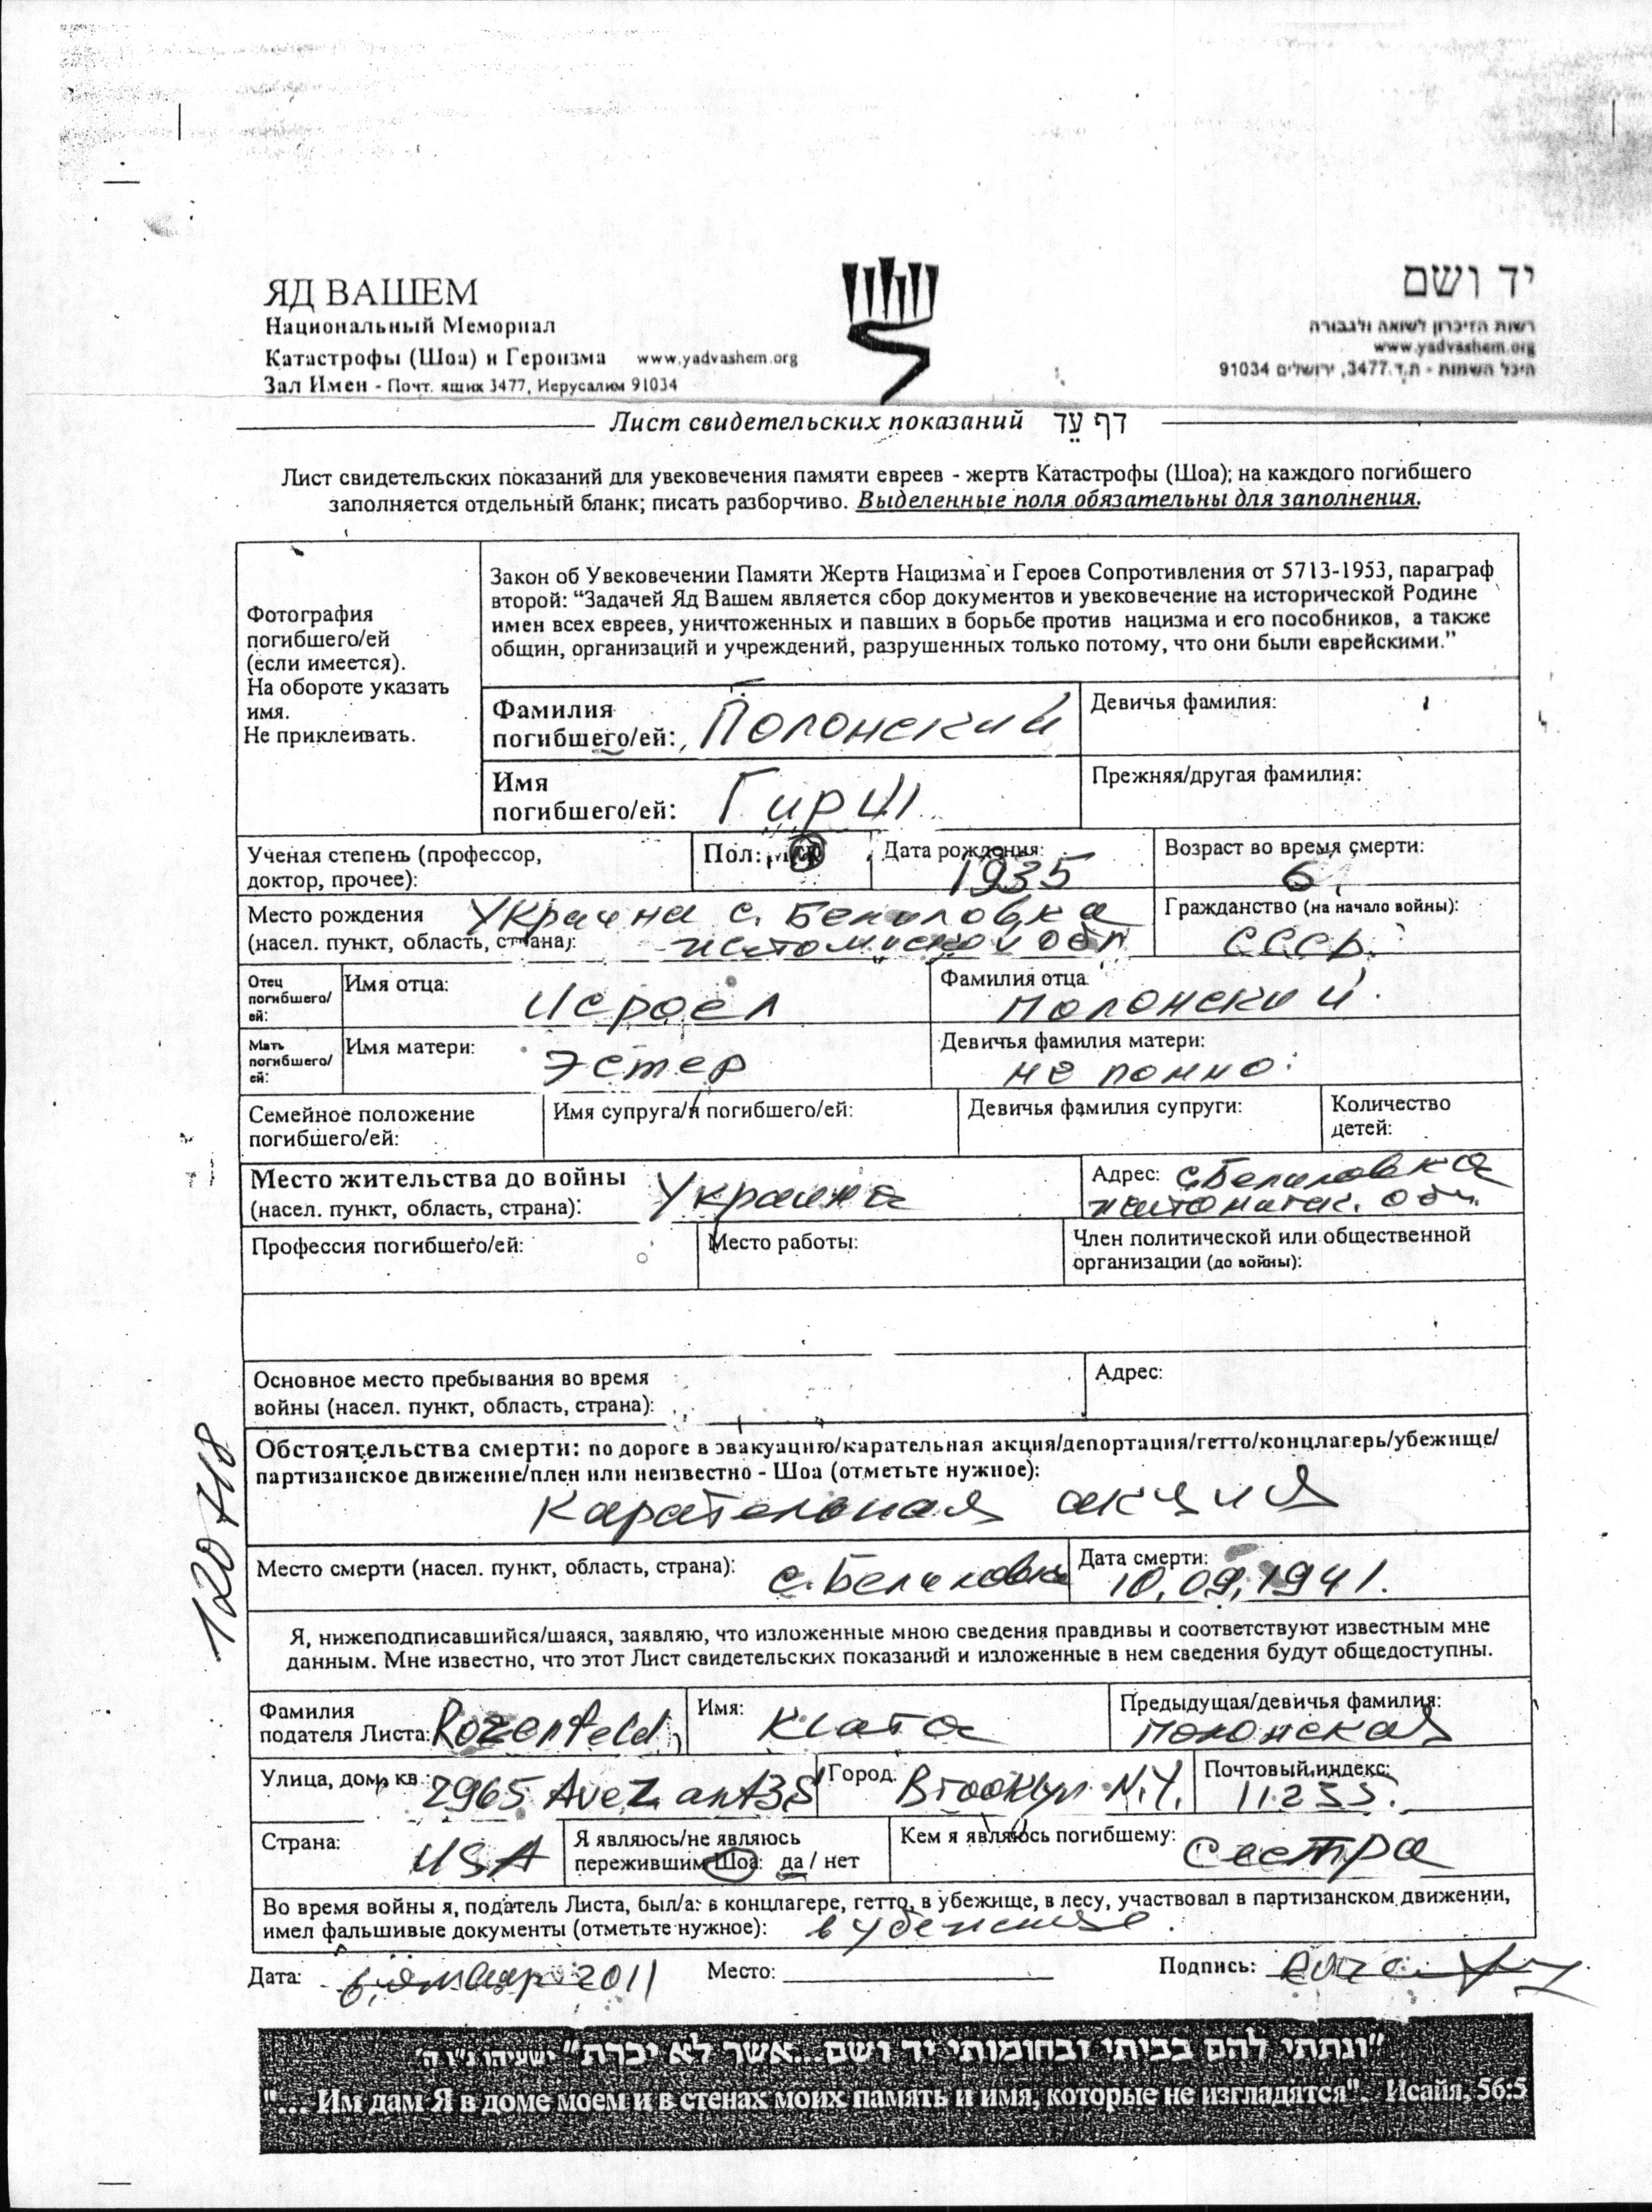 ЯД ВАШЕМ
Национальный Мемориал
Катастрофы (Шоа) и Героизма www.yadvashem.org
Зал Имен - Почт. ящик 3477, Иерусалим 91034
יד ושם
רשות הזיכרון לשואה ולגבורה
www.yadvashem.org
היכל השמות - ת.ד. 3477, ירושלים 91034
Лист свидетельских показаний דף עֵד
Лист свидетельских показаний для увековечения памяти евреев - жертв Катастрофы (Шоа); на каждого погибшего
заполняется отдельный бланк; писать разборчиво. Выделенные поля обязательны для заполнения.
Фотография
погибшего/ей
(если имеется).
На обороте указать
имя.
Не приклеивать.
Закон об Увековечении Памяти Жертв Нацизма и Героев Сопротивления от 5713-1953, параграф
второй: “Задачей Яд Вашем является сбор документов и увековечение на исторической Родине
имен всех евреев, уничтоженных и павших в борьбе против нацизма и его пособников, а также
общин, организаций и учреждений, разрушенных только потому, что они были еврейскими.”
Фамилия
погибшего/ей: Полонский
Девичья фамилия:
Имя
погибшего/ей: Гирш
Прежняя/другая фамилия:
Ученая степень (профессор,
доктор, прочее):
Пол:
Дата рождения: 1935
Возраст во время смерти: 6
Место рождения Украина с. Белиловка
(насел. пункт, область, страна): обл
Гражданство (на начало войны):
СССР.
Отец
погибшего/
ей:
Имя отца: Исроел
Фамилия отца Полонский.
Мать
погибшего/
ей:
Имя матери: Эстер
Девичья фамилия матери:
не помню.
Семейное положение
погибшего/ей:
Имя супруга/и погибшего/ей:
Девичья фамилия супруги:
Количество
детей:
Место жительства до войны
(насел. пункт, область, страна): Украина
Адрес: с. Белиловка
обл.
Профессия погибшего/ей:
Место работы:
Член политической или общественной
организации (до войны):
Основное место пребывания во время
войны (насел. пункт, область, страна):
Адрес:
Обстоятельства смерти: по дороге в эвакуацию/карательная акция/депортация/гетто/концлагерь/убежище/
партизанское движение/плен или неизвестно - Шоа (отметьте нужное):
Карательная акция
Место смерти (насел. пункт, область, страна): с. Белиловка
Дата смерти:
10.09.1941.
Я, нижеподписавшийся/шаяся, заявляю, что изложенные мною сведения правдивы и соответствуют известным мне
данным. Мне известно, что этот Лист свидетельских показаний и изложенные в нем сведения будут общедоступны.
Фамилия
подателя Листа: Rozenfeld
Имя:
Предыдущая/девичья фамилия:
Полонская
Улица, дом, кв.: 2965 Ave Z apt 3S
Город: Brooklyn N.Y.
Почтовый индекс:
Страна: USA
Я являюсь/не являюсь
пережившим Шоа: да / нет
Кем я являюсь погибшему: Сестра
Во время войны я, податель Листа, был/а: в концлагере, гетто, в убежище, в лесу, участвовал в партизанском движении,
имел фальшивые документы (отметьте нужное): в убежище.
Дата: 2011
Место:
Подпись:
"ונתתי להם בביתי ובחומותי יד ושם...אשר לא יכרת" ישעיהו נ"ו ה'
"... Им дам Я в доме моем и в стенах моих память и имя, которые не изгладятся". Исайя, 56:5